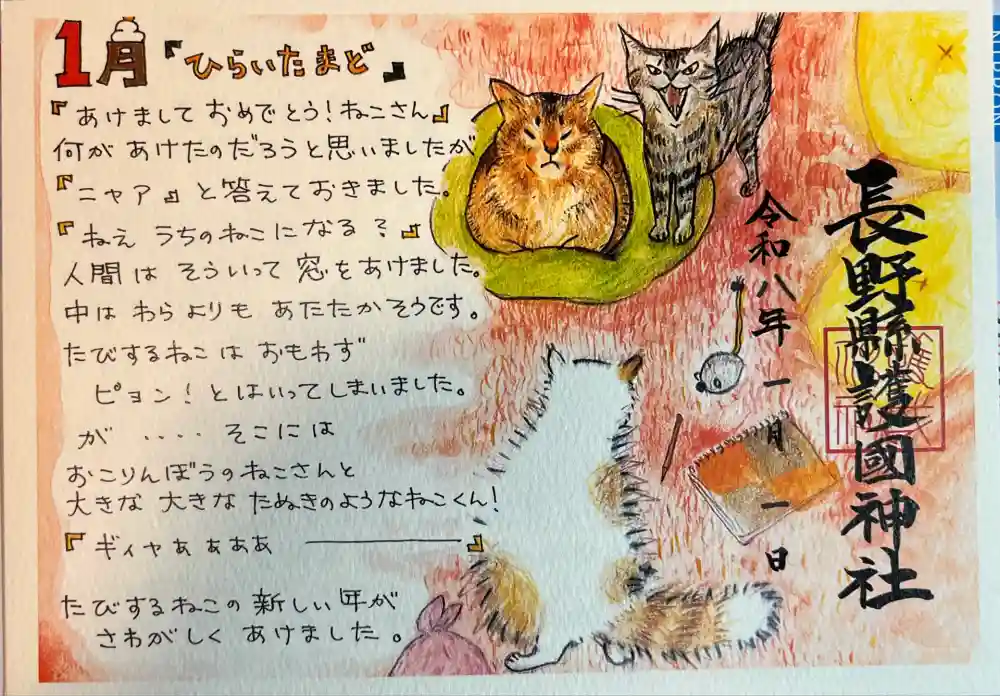 1月『ひらいたまど』
『あけましておめでとう！ねこさん』
何があけたのだろうと思いましたが
『ニャア』と答えておきました。
『ねえ うちのねこになる？』
人間は そういって 窓をあけました。
中は わらよりも あたたかそうです。
たびするねこは おもわず
ピョン！とはいってしまいました。
が ‥‥ そこには
おこりんぼうのねこさんと
大きな 大きな たぬきのようなねこくん！
『ギィヤぁぁぁぁ ――――』
たびするねこの 新しい年が
さわがしく あけました。
長野縣護國神社
令和八年一月一日